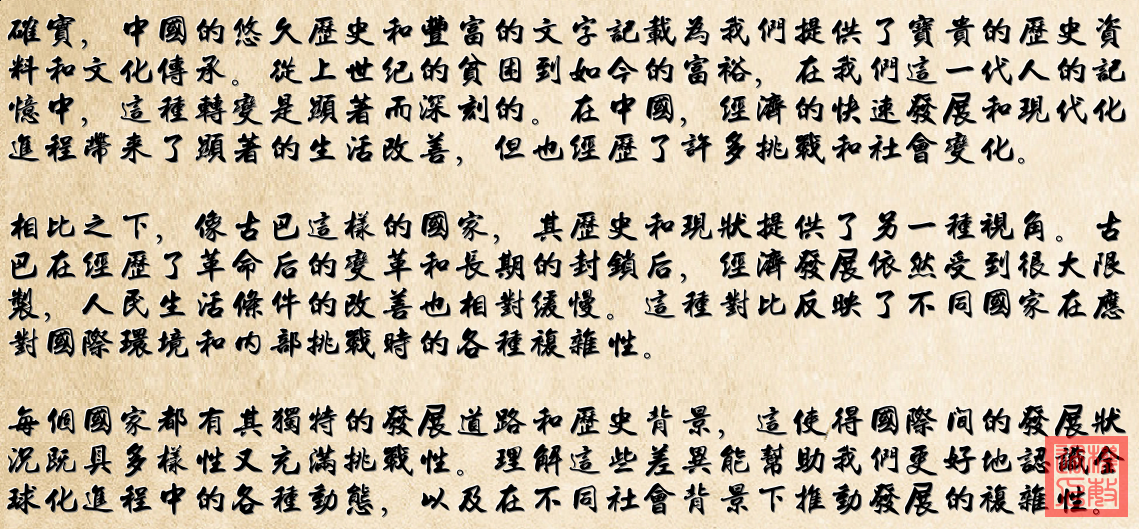 確實，中國的悠久歷史和豐富的文字記載為我們提供了寶貴的歷史資
料和文化傳承。從上世纪的貧困到如今的富裕，在我們這一代人的記
憶中，這種轉變是顯著而深刻的。在中國，經濟的快速發展和現代化
進程帶來了顯著的生活改善，但也經歷了許多挑戰和社會變化。
相比之下，像古巴這樣的國家，其歷史和現狀提供了另一種視角。古
巴在經歷了革命后的變革和長期的封鎖后，經濟發展依然受到很大限
製，人民生活條件的改善也相對緩慢。這種對比反映了不同國家在應
對國際環境和內部挑戰時的各種複雜性。
每個國家都有其獨特的發展道路和歷史背景，這使得國際间的發展狀
況既具多樣性又充滿挑戰性。理解這些差異能幫助我們更好地認識全
球化進程中的各種動態，以及在不同社會背景下推動發展的複雜性。